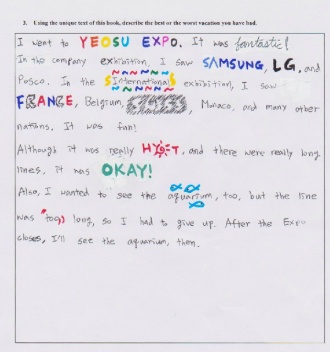 3. Using the unique text of this book, describe the best or the worst vacation you have had.
I went to YEOSU EXPO. It was fantastic!
In the company exhibition, I saw SAMSUNG, LG, and
Posco. In the International exhibition, I saw
FRANCE, Belgium, Monaco, and many other
nations. It was fun!
Although it was really HOT, and there were really long
lines, it was OKAY!
Also, I wanted to see the aquarium, too, but the line
was "too" long, so I had to give up. After the Expo
closes, I'll see the aquarium, then.